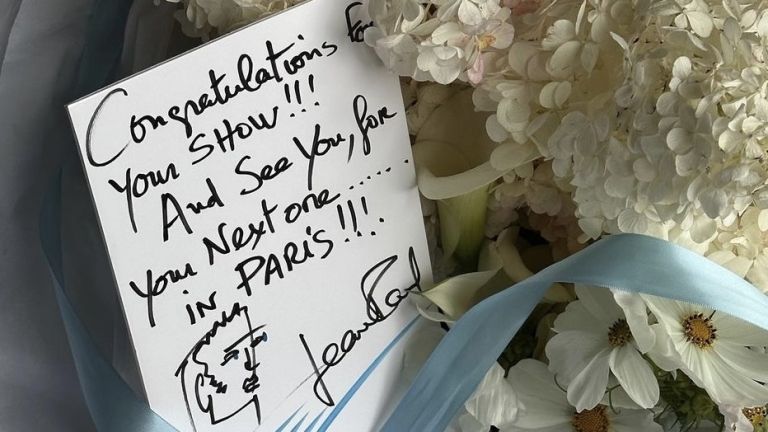 Congratulations For
Your SHOW!!!
And See You, for
Your Next one......
in PARIS!!!.
Jean Paul